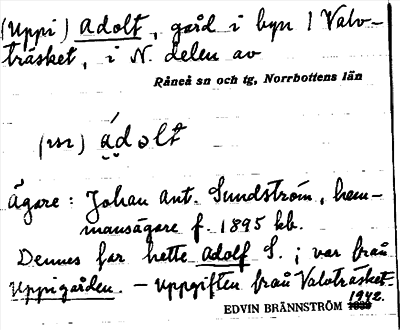 (Uppi) Adolt, gård i byn / Valv-
träsket, i N. delen av
Råneå sn och tg, Norrbottens län
ádolt
Ägare: Johan Ant. Sundström, hem-
mansägare f. 1895 kb.
Dennes far hette Adolf S.; var från
Uppigården. – Uppgiften från Valvträsket.
EDVIN BRÄNNSTRÖM 1942.